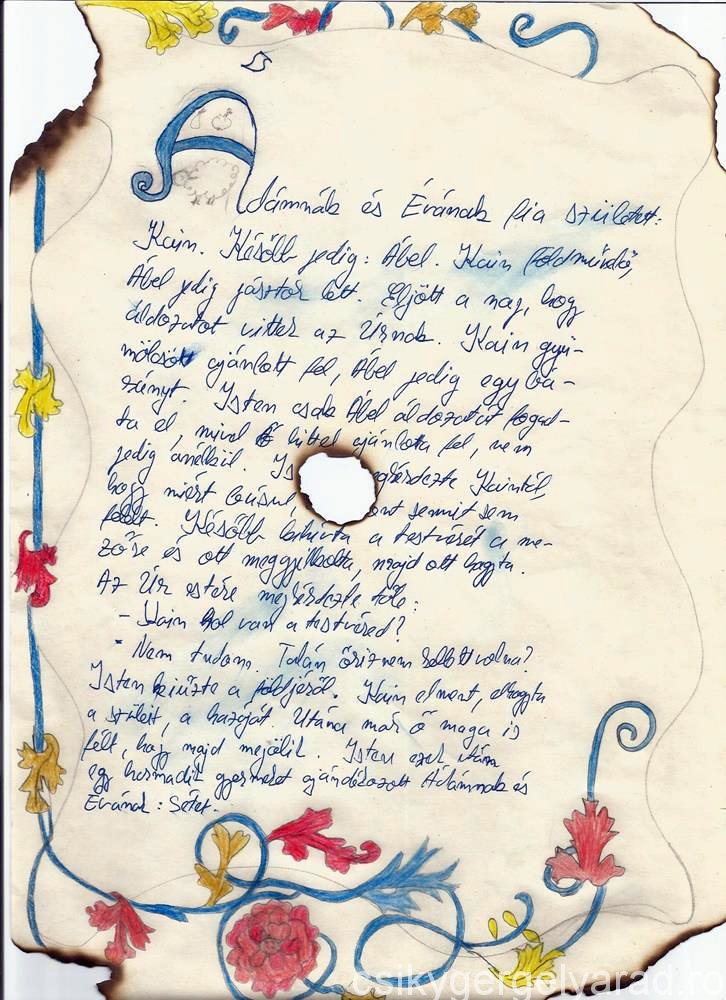 Ádámnak és Évának fia született:
Kain. Később pedig: Ábel. Kain földművelő,
Ábel pedig pásztor lett. Eljött a nap, hogy
áldozatot vittek az Úrnak. Kain gyü-
mölcsöt ajánlott fel, Ábel pedig egy bá-
rányt. Isten csak Ábel áldozatát fogad-
ta el, mivel ő hittel ajánlotta fel, nem
pedig anélkül. Is gkérdezte Kaintól,
hogy miért búsul, ont semmit sem
felelt. Később kihívta a testvérét a me-
zőre és ott meggyilkolta, majd ott hagyta.
Az Úr estére megkérdezte tőle:
- Kain hol van a testvéred?
- Nem tudom. Talán őriznem kellett volna?
Isten kiűzte a földjéről. Kain elment, elhagyta
a szüleit, a hazáját. Utána már ő maga is
félt, hogy majd megölik. Isten ezek után
egy harmadik gyermeket ajándékozott Ádámnak és
Évának: Sétet.
csikygergelyarad.ro